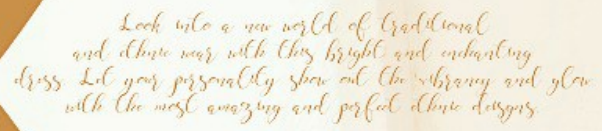 Look into a new world of traditional
and ethnic wear with this bright and enchanting
dress. Let your personality show out the vibrancy and glow
with the most amazing and perfect ethnic designs.